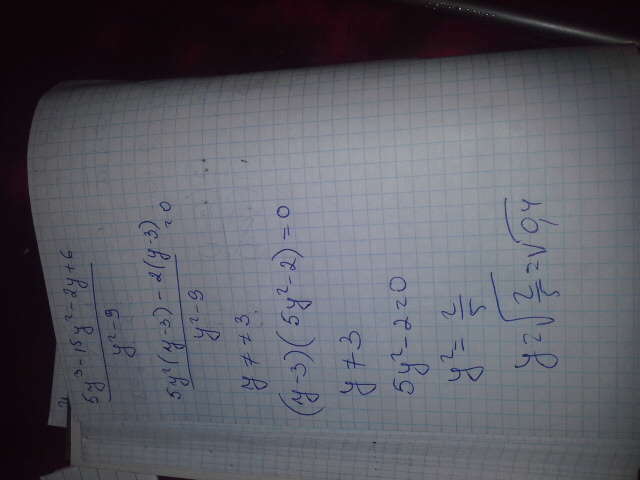 5y³-15y²-2y+6
y²-9
5y²(y-3)-2(y-3)
=0
y²-9
y≠±3
(y-3)(5y²-2)=0
y≠3
5y²-2=0
y²=2/5
y=√2/5=√0,4